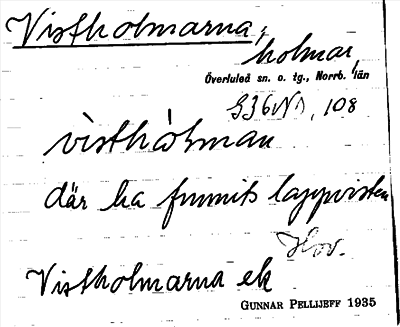 Vistholmarna,
holmar,
Överluleå sn. o. tg., Norrb. län
108
visthåļman
där ha funnits lappvisten
Hov.
Vistholmarna ek
GUNNAR PELLIJEFF 1935